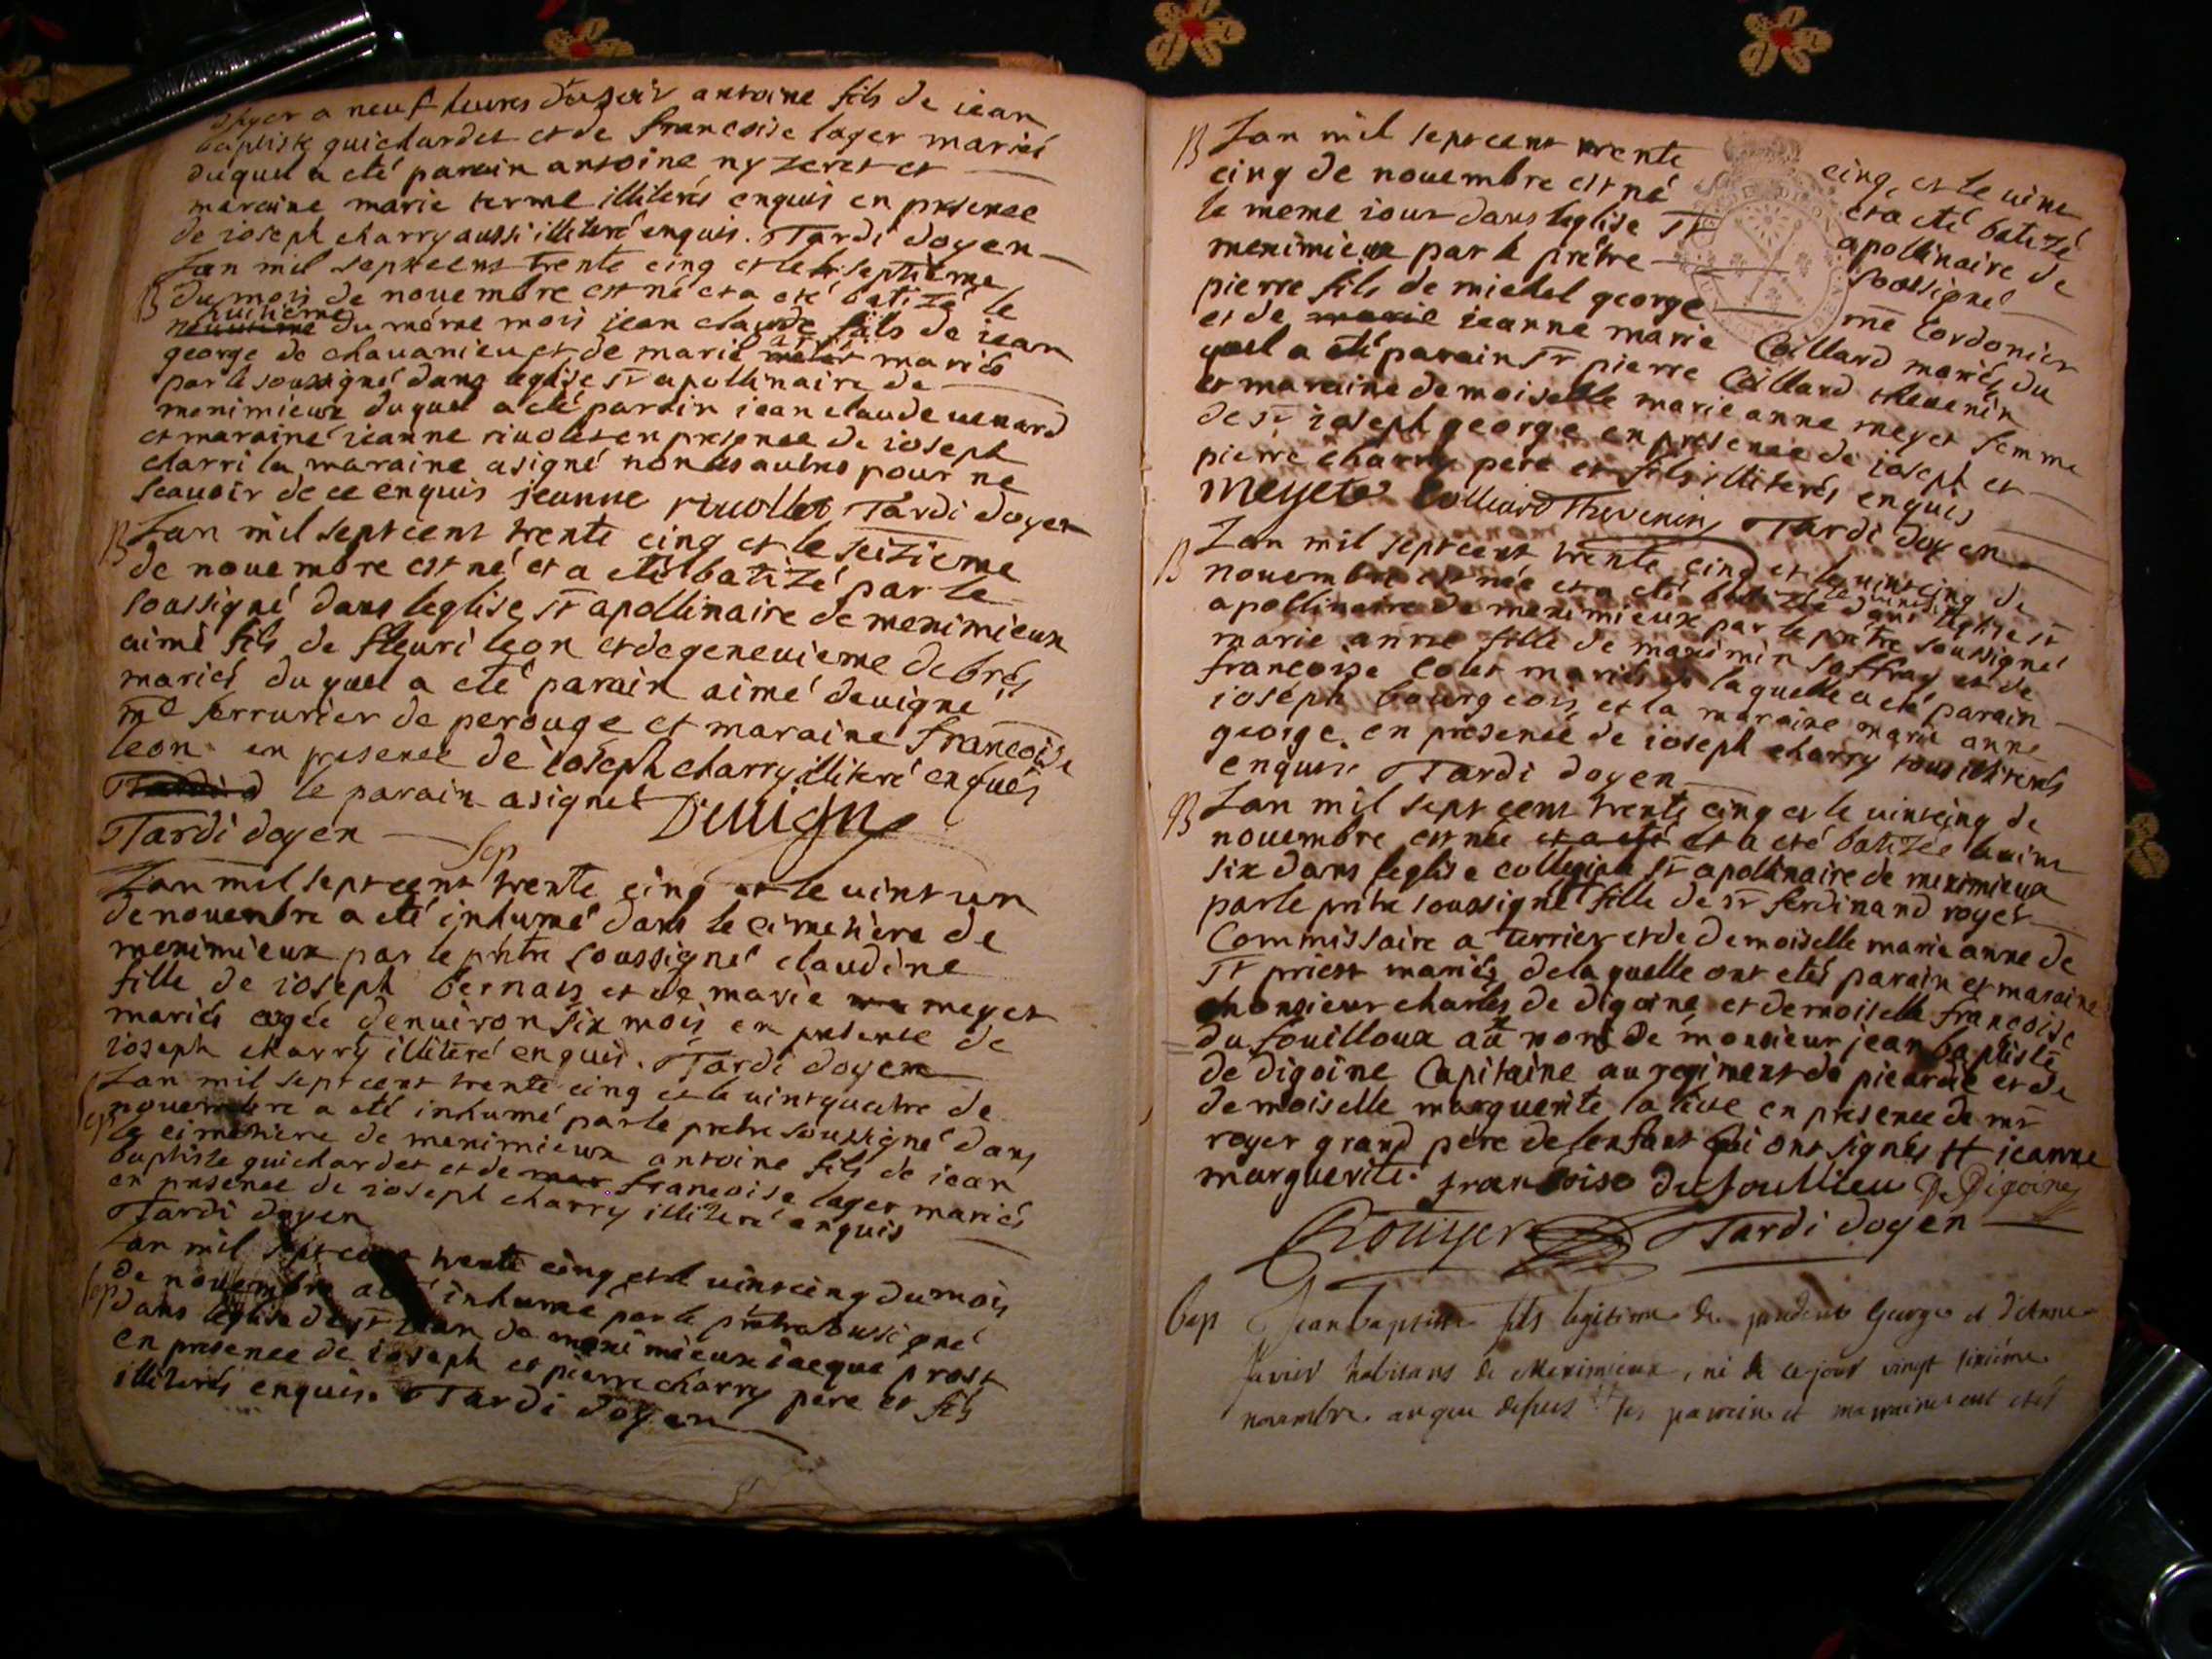 a neuf heures du soir antoine fils de iean
baptiste guichardet et de francoise lager mariés
duquel a eté parain antoine nyzeret et
maraine marie terme illiterés enquis en presence
de ioseph charry aussi illiteré enquis. Tardi doyen
B Lan mil sept cent trente cinq et le septieme
du mois de nouembre est né et a eté batizé le
huitieme
neuuieme du méme mois iean claude fils de iean
george de chauanieu et de marie mariés
par le soussigné dans leglise st apollinaire de
meximieux duquel a eté parain iean claude uenard
et maraine ieanne riuolet en presence de ioseph
charri la maraine a signé non les autres pour ne
scauoir de ce enquis jeanne riuollet Tardi doyen
B Lan mil sept cent trente cinq et le seizieme
de nouembre est né et a eté batizé par le
soussigné dans leglise st apollinaire de meximieux
aimé fils de fleuri leon et de geneuieme debres
mariés duquel a eté parain aimé deuigne
me serrurier de perouge et maraine francoise
leon en presence de ioseph charry illiteré enquis
Tardi d le parain a signé Deuigne
Tardi doyen
Sep
Lan mil sept cent trente cinq et le uint un
de nouembre a eté inhumé dans le cimetiere de
meximieux par le prêtre soussigné claudine
fille de ioseph bernais et de marie me meyet
mariés agée denuiron six mois en presence de
ioseph charry illiteré enquis. Tardi doyen
Sep Lan mil sept cent trente cinq et le uint quatre de
nouembre a eté inhumé par le prêtre soussigné dans
le cimetiere de meximieux antoine fils de iean
baptiste guichardet et de mar francoise lager mariés
en presence de ioseph charry illiteré enquis
Tardi doyen
Sep Lan mil sept cent trente cinq et le uint cinq du mois
de nouembre a eté inhumé par le prêtre soussigné
dans leglise de st iean de meximieux iacque prost
en presence de ioseph et pierre charry pere et fils
illiterés enquis. Tardi doyen
B Lan mil sept cent trente cinq et le uint
cinq de nouembre est né et a eté batizé
le meme iour dans leglise st apollinaire de
meximieux par le prêtre soussigné
pierre fils de michel george me Cordonier
et de marie ieanne marie Colliard mariés du
quel a eté parain sr pierre Colliard theuenin
et maraine demoiselle marie anne meyet femme
de sr ioseph george en presence de ioseph et
pierre charry pere et fils illiterés enquis
meyete Colliard Thevenin Tardi doyen
B Lan mil sept cent trente cinq et le uint cinq de
nouembre est née et a eté batizée dans leglise st
apollinaire de meximieux par le prêtre soussigné
marie anne fille de maximin saffray et de
francoise colet mariés de laquelle a eté parain
ioseph bourgeois et la maraine marie anne
george. en presence de ioseph charry tous illiterés
enquis. Tardi doyen
B Lan mil sept cent trente cinq et le uint cinq de
nouembre est née et a eté et a eté batizée le uint
six dans leglise collegiale st apollinaire de meximieux
par le prêtre soussigné fille de sr ferdinand royer
Commissaire a terrier et de demoiselle marie anne de
st priest mariés de laquelle ont etés parain et maraine
monsieur charles de digoine et demoiselle francoise
du fouilloux au nom de monsieur jean baptiste
de digoine Capitaine au regiment de picardie et de
demoiselle marguerite laliue en presence de mr
royer grand pére de lenfant qui ont signés # ieanne
marguerite. francoise dufoullieu De Digoine
Rouyer Tardi doyen
bap Jean baptiste fils legitime de prudent George et d'Anne
Javier habitans de Meximieux, né de ce jour vingt sixième
novembre. an que dessus les parein et maraine ont etés